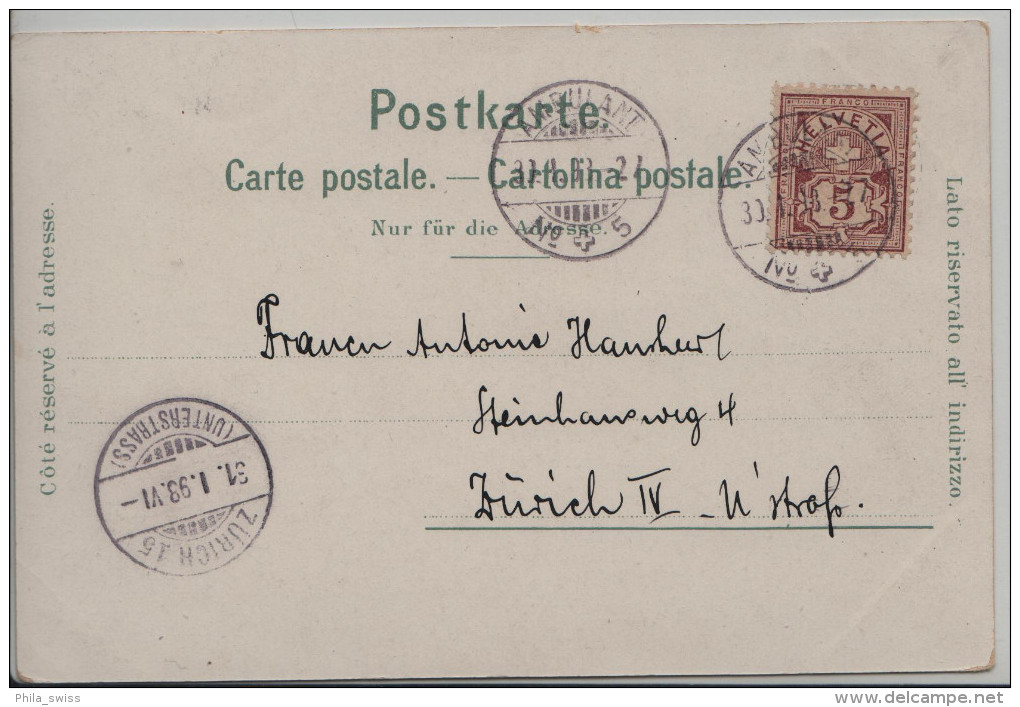 Postkarte.
Carte postale. — Cartolina postale.
Nur für die Adresse.
Côté réservé à l'adresse.
Lato riservato all' indirizzo.
AMBULANT
No 5
FRANCO
HELVETIA
FRANCO
5
No
Antonie
Steinhausweg 4
Zürich IV - U'straß.
(UNTERSTRASS)
31. I. 98. VI -
ZÜRICH 15
Phila_swiss
www.delcampe.net